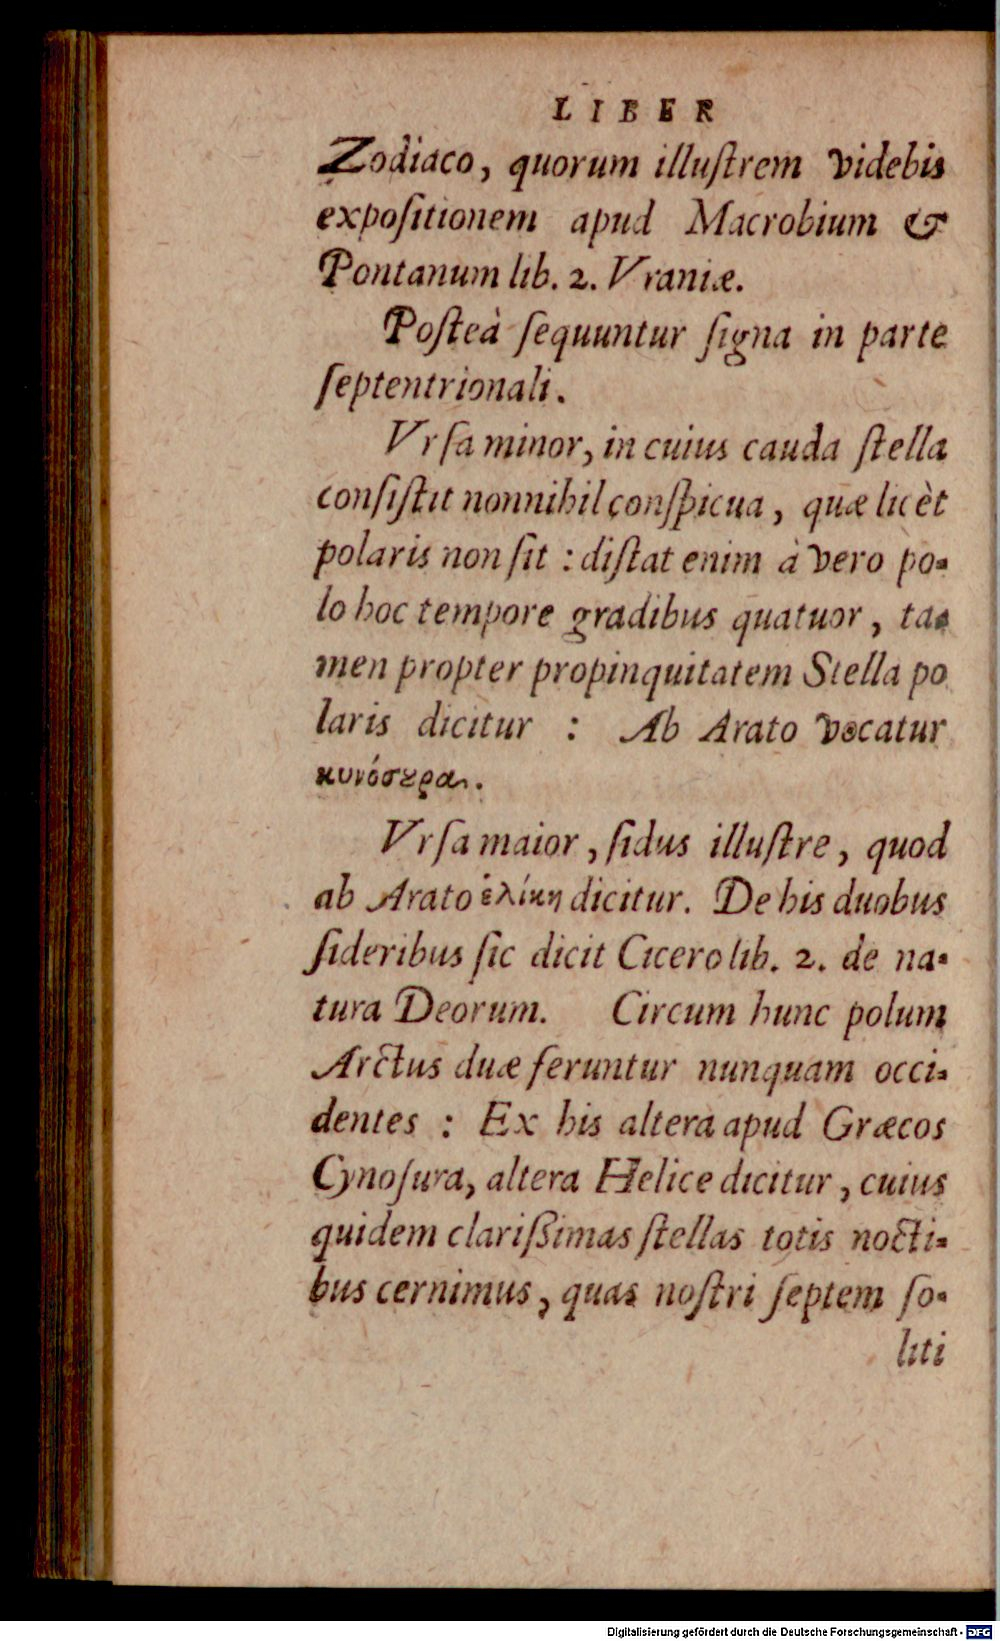 LIBER
Zodiaco, quorum illuſtrem videbis
expoſitionem apud Macrobium &
Pontanum lib. 2. Vraniæ.
Poſteà ſequuntur ſigna in parte
ſeptentrionali.
Vrſa minor, in cuius cauda ſtella
conſiſtit nonnihil conſpicua, quæ licèt
polaris non ſit : diſtat enim à vero po-
lo hoc tempore gradibus quatuor, ta-
men propter propinquitatem Stella po
laris dicitur : Ab Arato vocatur
κυνόσȣρα.
Vrſa maior, ſidus illuſtre, quod
ab Arato ἑλίκη dicitur. De his duobus
ſideribus ſic dicit Cicero lib. 2. de na-
tura Deorum. Circum hunc polum
Arctus duæ feruntur nunquam occi-
dentes : Ex his altera apud Græcos
Cynoſura, altera Helice dicitur, cuius
quidem clariſsimas ſtellas totis nocti-
bus cernimus, quas noſtri ſeptem ſo-
liti
Digitalisierung gefördert durch die Deutsche Forschungsgemeinschaft - DFG